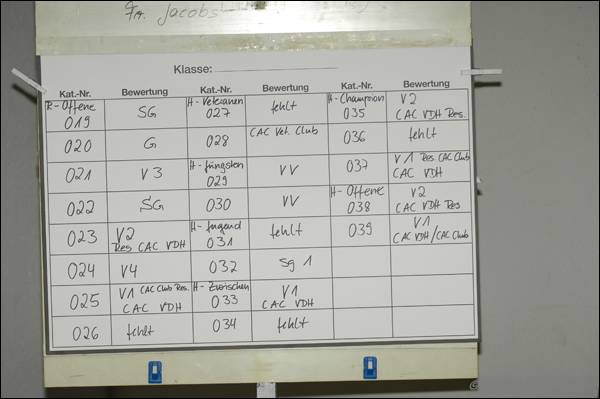 Fa. Jacobs
Klasse:
Kat.-Nr. Bewertung Kat.-Nr. Bewertung Kat.-Nr. Bewertung
R-Offene 019 SG H-Veteranen 027 fehlt H-Champion 035 V2 CAC VDH Res.
020 G 028 CAC Vet. Club 036 fehlt
021 V3 H-Jüngsten 029 VV 037 V1 Res CAC Club CAC VDH
022 SG 030 VV H-Offene 038 V2 CAC VDH Res
023 V2 Res CAC VDH H-Jugend 031 fehlt 039 V1 CAC VDH/CAC Club
024 V4 032 Sg 1
025 V1 CAC Club Res. CAC VDH H-Zwischen 033 V1 CAC VDH
026 fehlt 034 fehlt